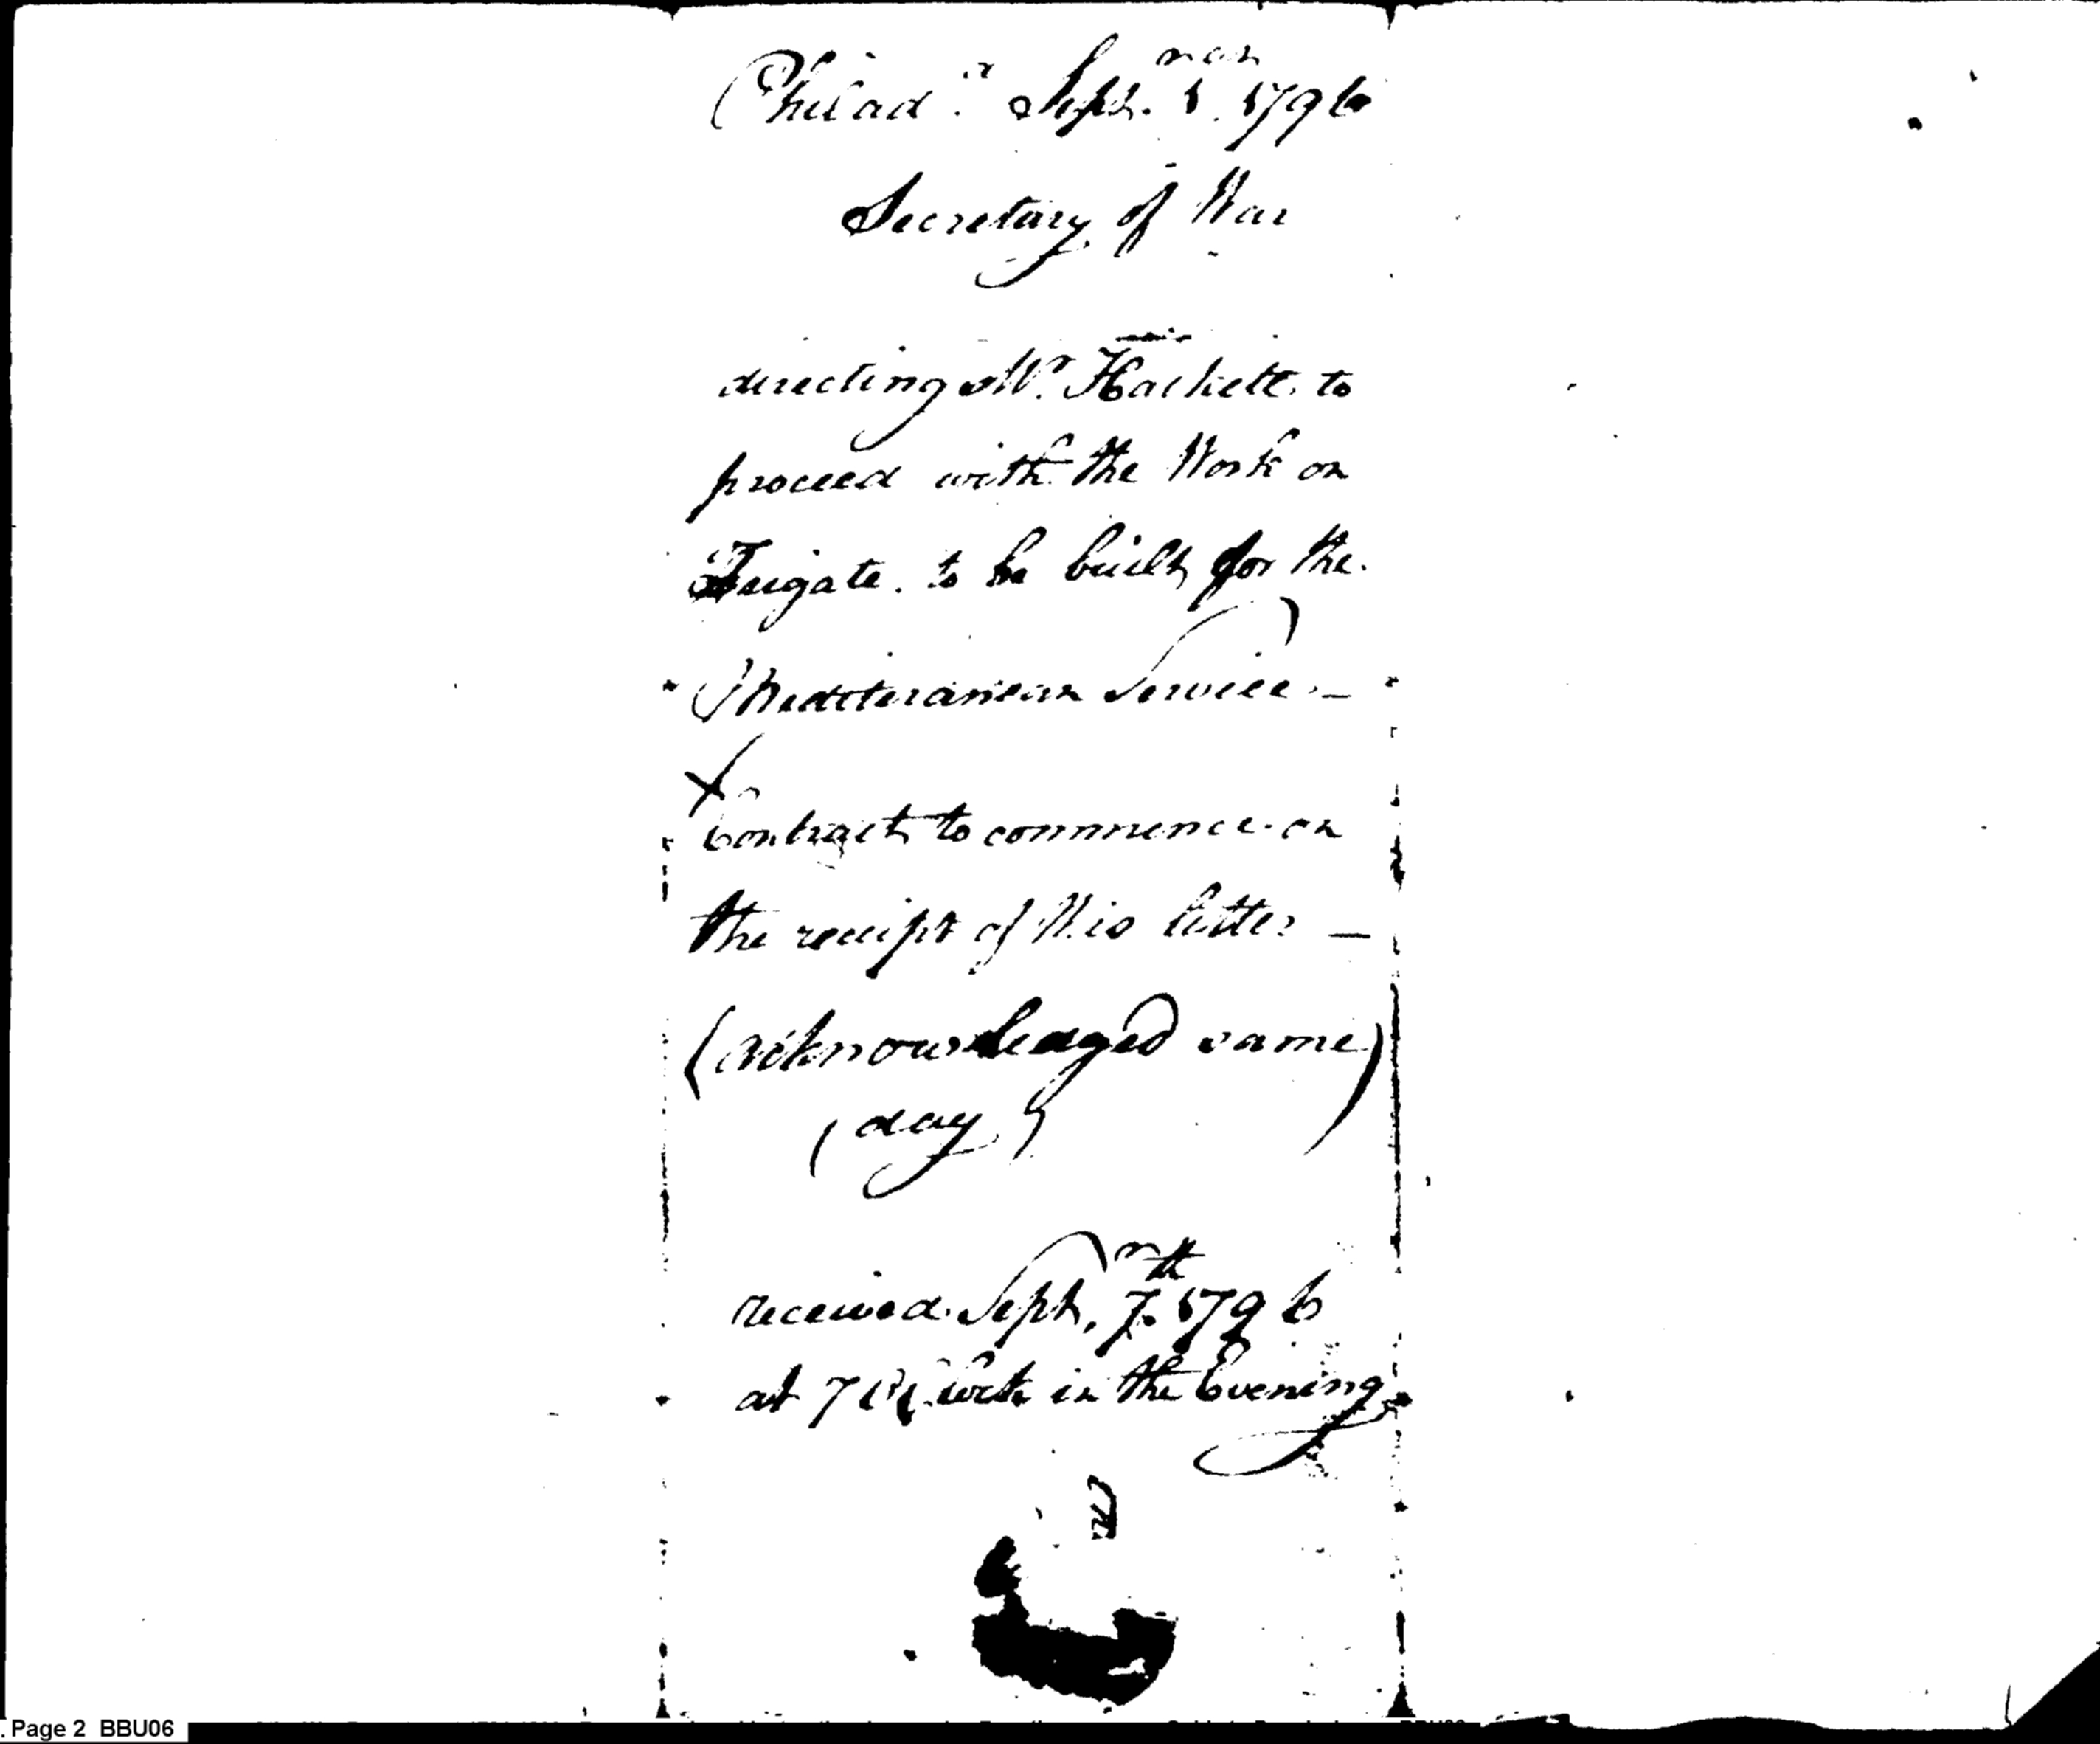 Philad.ª Sept. 1. 1796
Secretary of War
directing Mr. Hackett, to
proceed with the Work on
Frigate. to be built for the
Mediteranean Service. —
X
Contract to commence on
the receipt of His letter —
(acknowledged same)
(day)
received Sept. 7th 1796
at 7 in the Evening
Page 2 BBU06